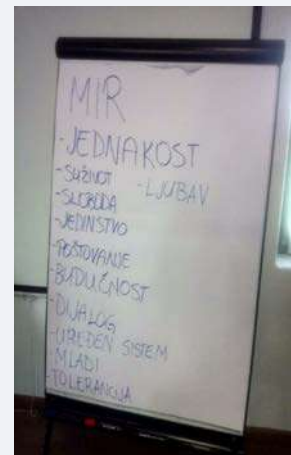 MIR
-JEDNAKOST
-SUŽIVOT -LJUBAV
-SLOBODA
-JEDINSTVO
-POŠTOVANJE
-BUDUĆNOST
-DIJALOG
-UREĐEN SISTEM
-MLADI
-TOLERANCIJA